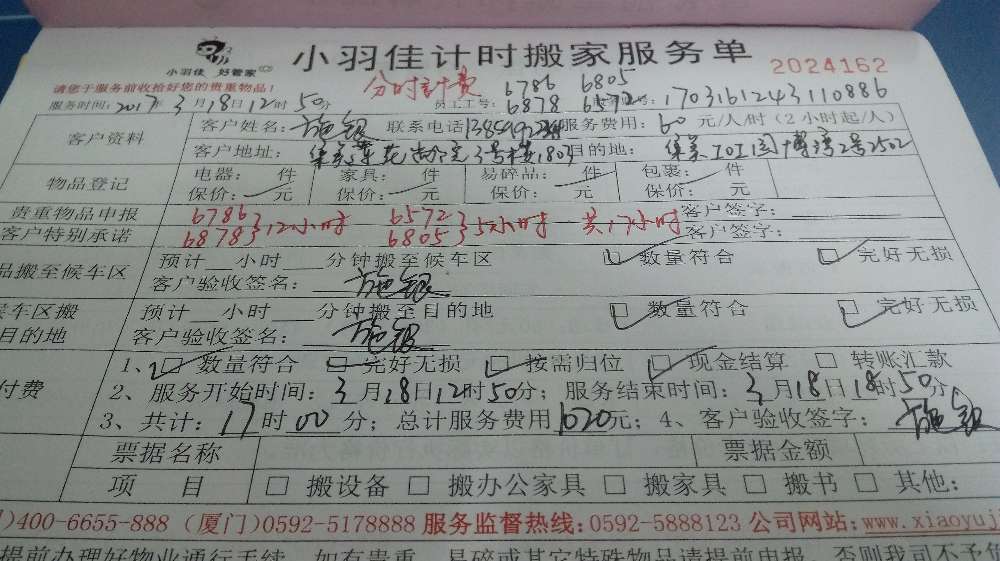 小羽佳 好管家
小羽佳计时搬家服务单
2024162
请您于服务前收拾好您的贵重物品!
分时计费 6786 6805
服务时间: 2017年3月18日12时50分 员工工号: 6878 6572 1703161243110886
客户资料
客户姓名: 施银 联系电话 服务费用: 60 元/人/时 (2小时起/人)
客户地址: 集美莲花尚院3号楼1803 目的地: 集美IOI园博湾2号2502
物品登记
电器: 件 家具: 件 易碎品: 件 包裹: 件
保价: 元 保价: 元 保价: 元 保价: 元
贵重物品申报 6786 6572 客户签字:
客户特别承诺 6878 }12小时 6805 }5小时 共17小时 客户签字:
品搬至候车区
预计 小时 分钟搬至候车区 数量符合 完好无损
客户验收签名: 施银
候车区搬
目的地
预计 小时 分钟搬至目的地 数量符合 完好无损
客户验收签名: 施银
付费
1、数量符合 完好无损 按需归位 现金结算 转账汇款
2、服务开始时间: 3月18日12时50分; 服务结束时间: 3月18日18时50分
3、共计: 17时00分; 总计服务费用1020元; 4、客户验收签字: 施银
票据名称 票据金额
项 目 搬设备 搬办公家具 搬家具 搬书 其他:
)400-6655-888 (厦门)0592-5178888 服务监督热线:0592-5888123 公司网站:www.xiaoyuj
提前办理好物业通行手续,如有贵重、易碎或其它特殊物品请提前申报,否则我司不予